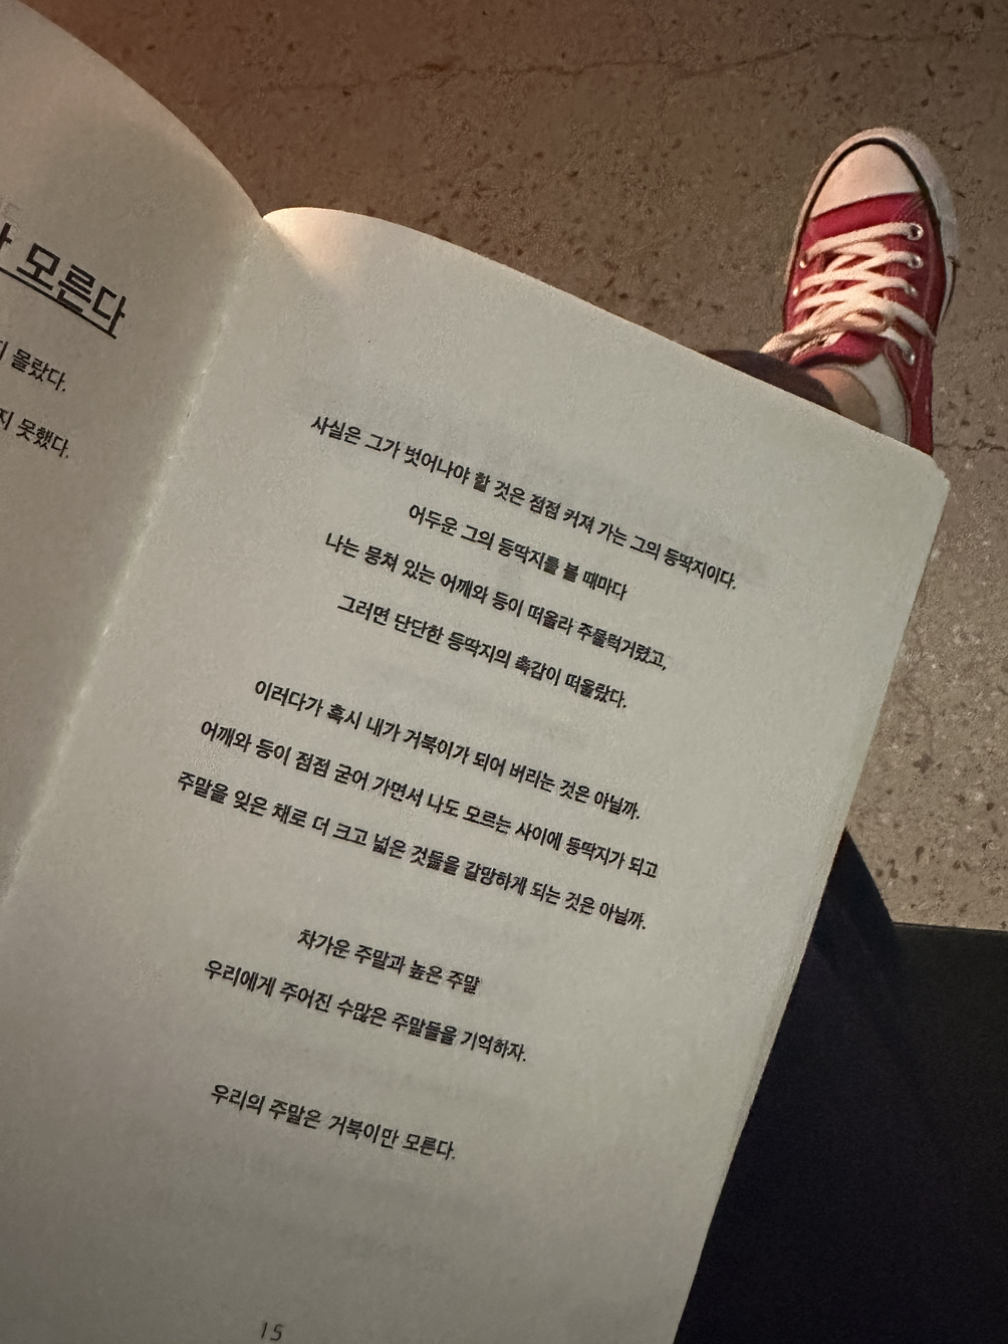 모른다
몰랐다.
못했다.
사실은 그가 벗어나야 할 것은 점점 커져 가는 그의 등딱지이다.
어두운 그의 등딱지를 볼 때마다
나는 뭉쳐 있는 어깨와 등이 떠올라 주물럭거렸고,
그러면 단단한 등딱지의 촉감이 떠올랐다.
이러다가 혹시 내가 거북이가 되어 버리는 것은 아닐까.
어깨와 등이 점점 굳어 가면서 나도 모르는 사이에 등딱지가 되고
주말을 잊은 채로 더 크고 넓은 것들을 갈망하게 되는 것은 아닐까.
차가운 주말과 높은 주말
우리에게 주어진 수많은 주말들을 기억하자.
우리의 주말은 거북이만 모른다.
15